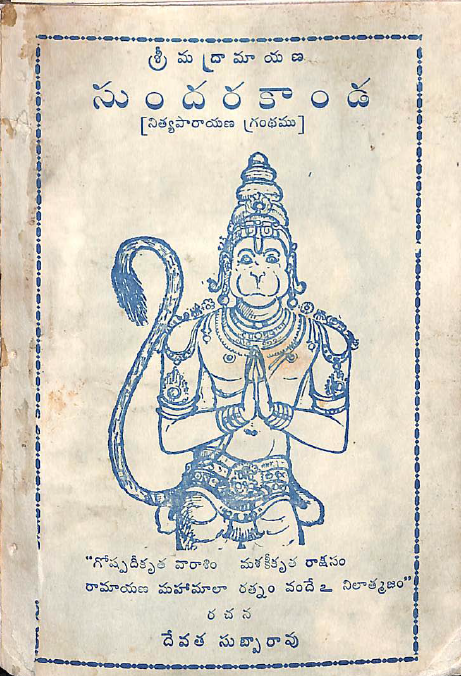 శ్రీ మ ద్రా మా య ణ
సుం ద ర కాం డ
[నిత్యపారాయణ గ్రంథము]
"గోష్పదీకృత వారాశిం మశకీకృత రాక్షసం
రామాయణ మహామాలా రత్నం వందే౽ నిలాత్మజం"
ర చ న
దేవత సుబ్బారావు